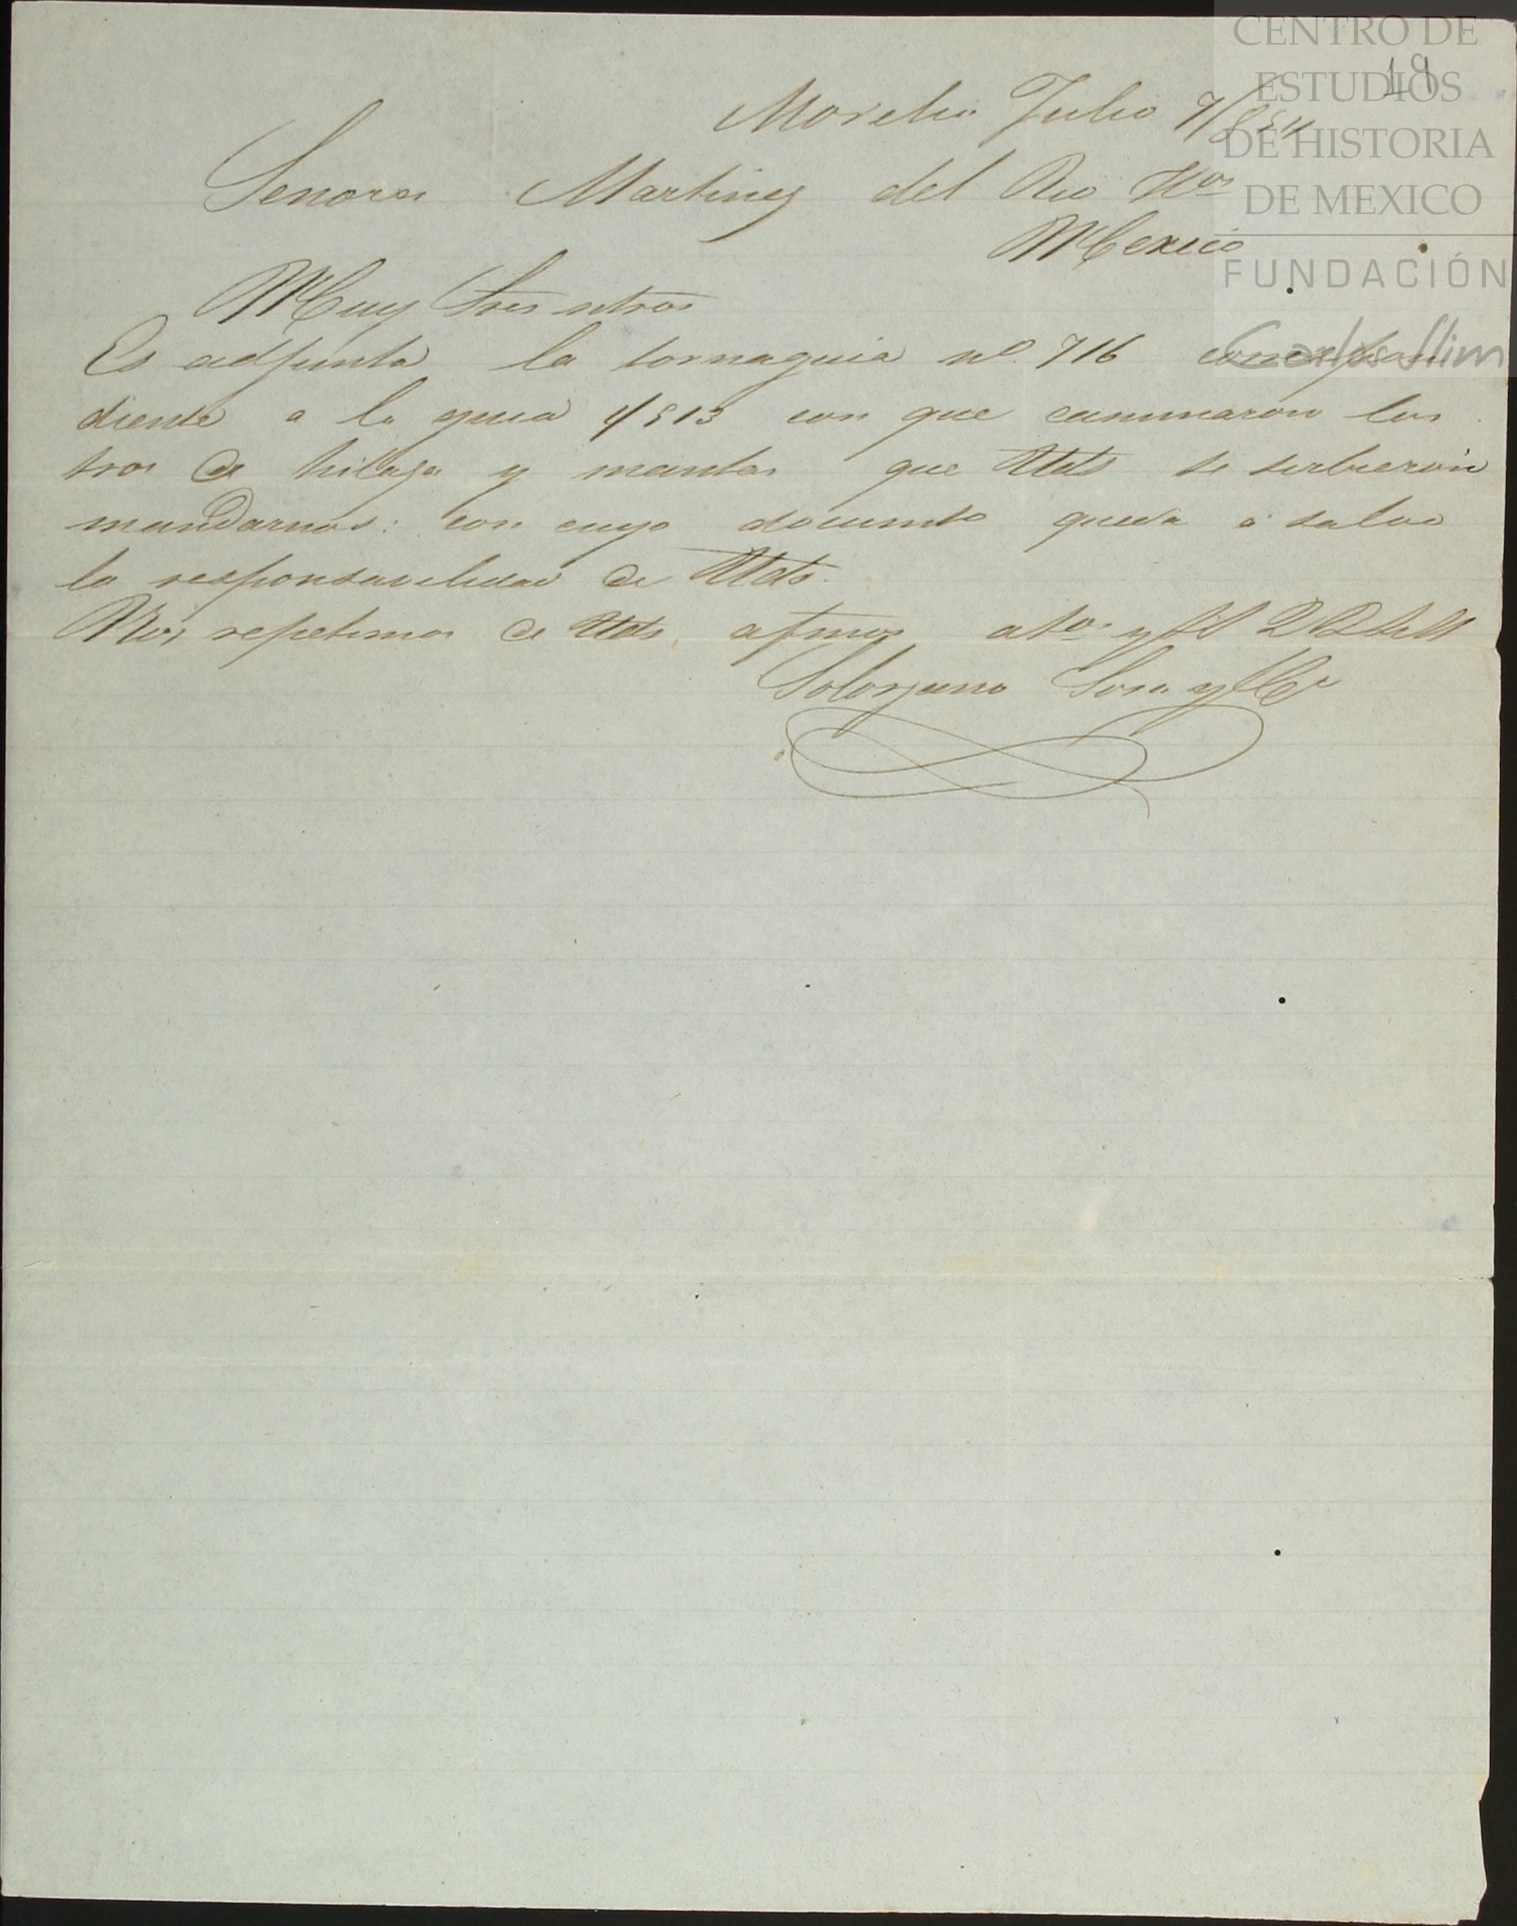 CENTRO DE
ESTUDIOS
DE HISTORIA
DE MEXICO
FUNDACIÓN
Carlos Slim
19
Morelia Julio 7/
Senores Martinez del Rio Hos
Mexico
Muy Sres ntros
Es adjunta la tornaguia no. 716 correspon
diente a la guia 4513 con que caminaron los
tros de hilaza y mantas que Utds se serbieron
mandarnos: con cuyo documto queda á salvo
la responsavilidad de Utds.
Nos repetimos de Utds afmos atos y
Solorzano Sosa y Ca